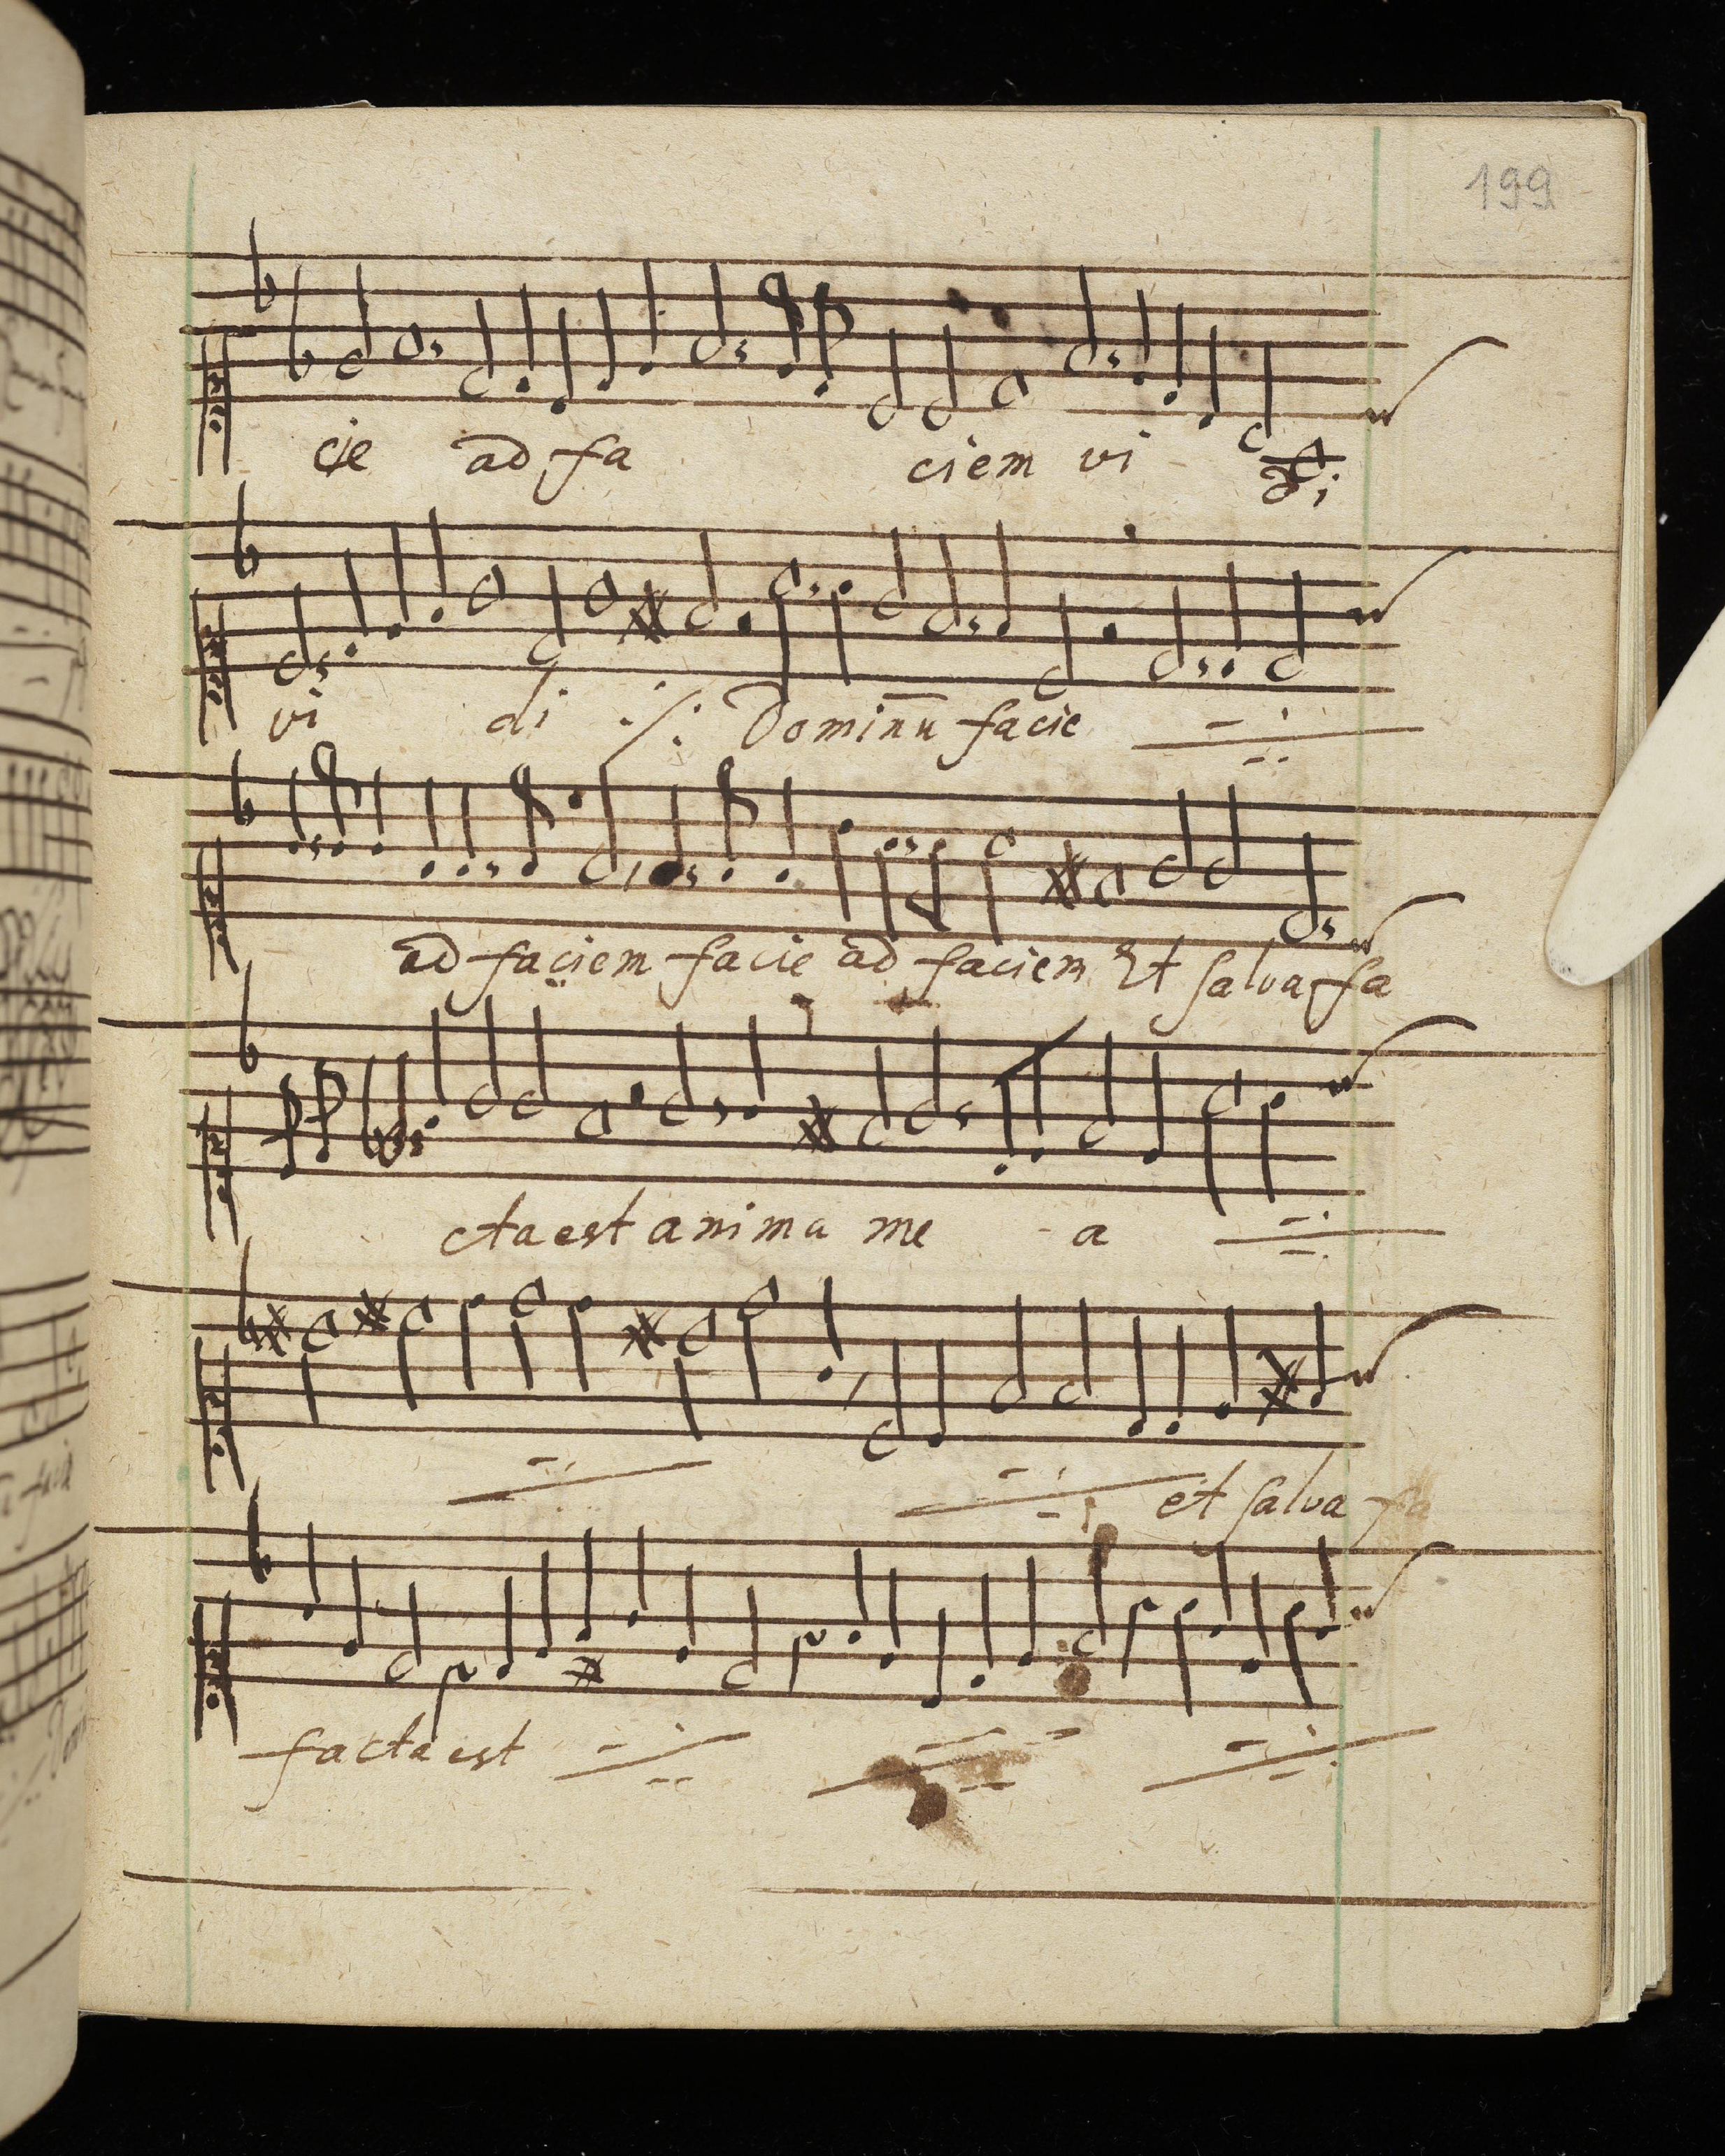 199
cie ad fa ciem vi di
vi di ·/: Dominū facie
ad faciem facie ad faciem Et salva fa
cta est anima me - a
et salva fa
facta est